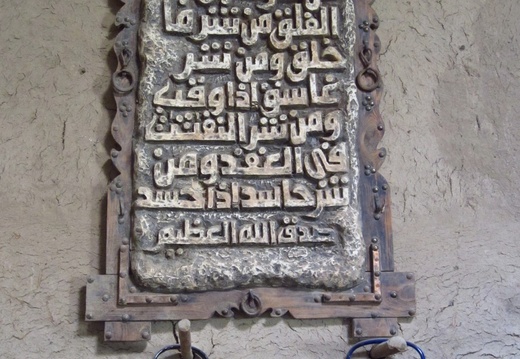 الفلق من شر ما
خلق ومن شر
غاسق اذا وقب
ومن شر النفثت
فى العقد ومن
شر حاسد اذا حسد
صدق الله العظيم